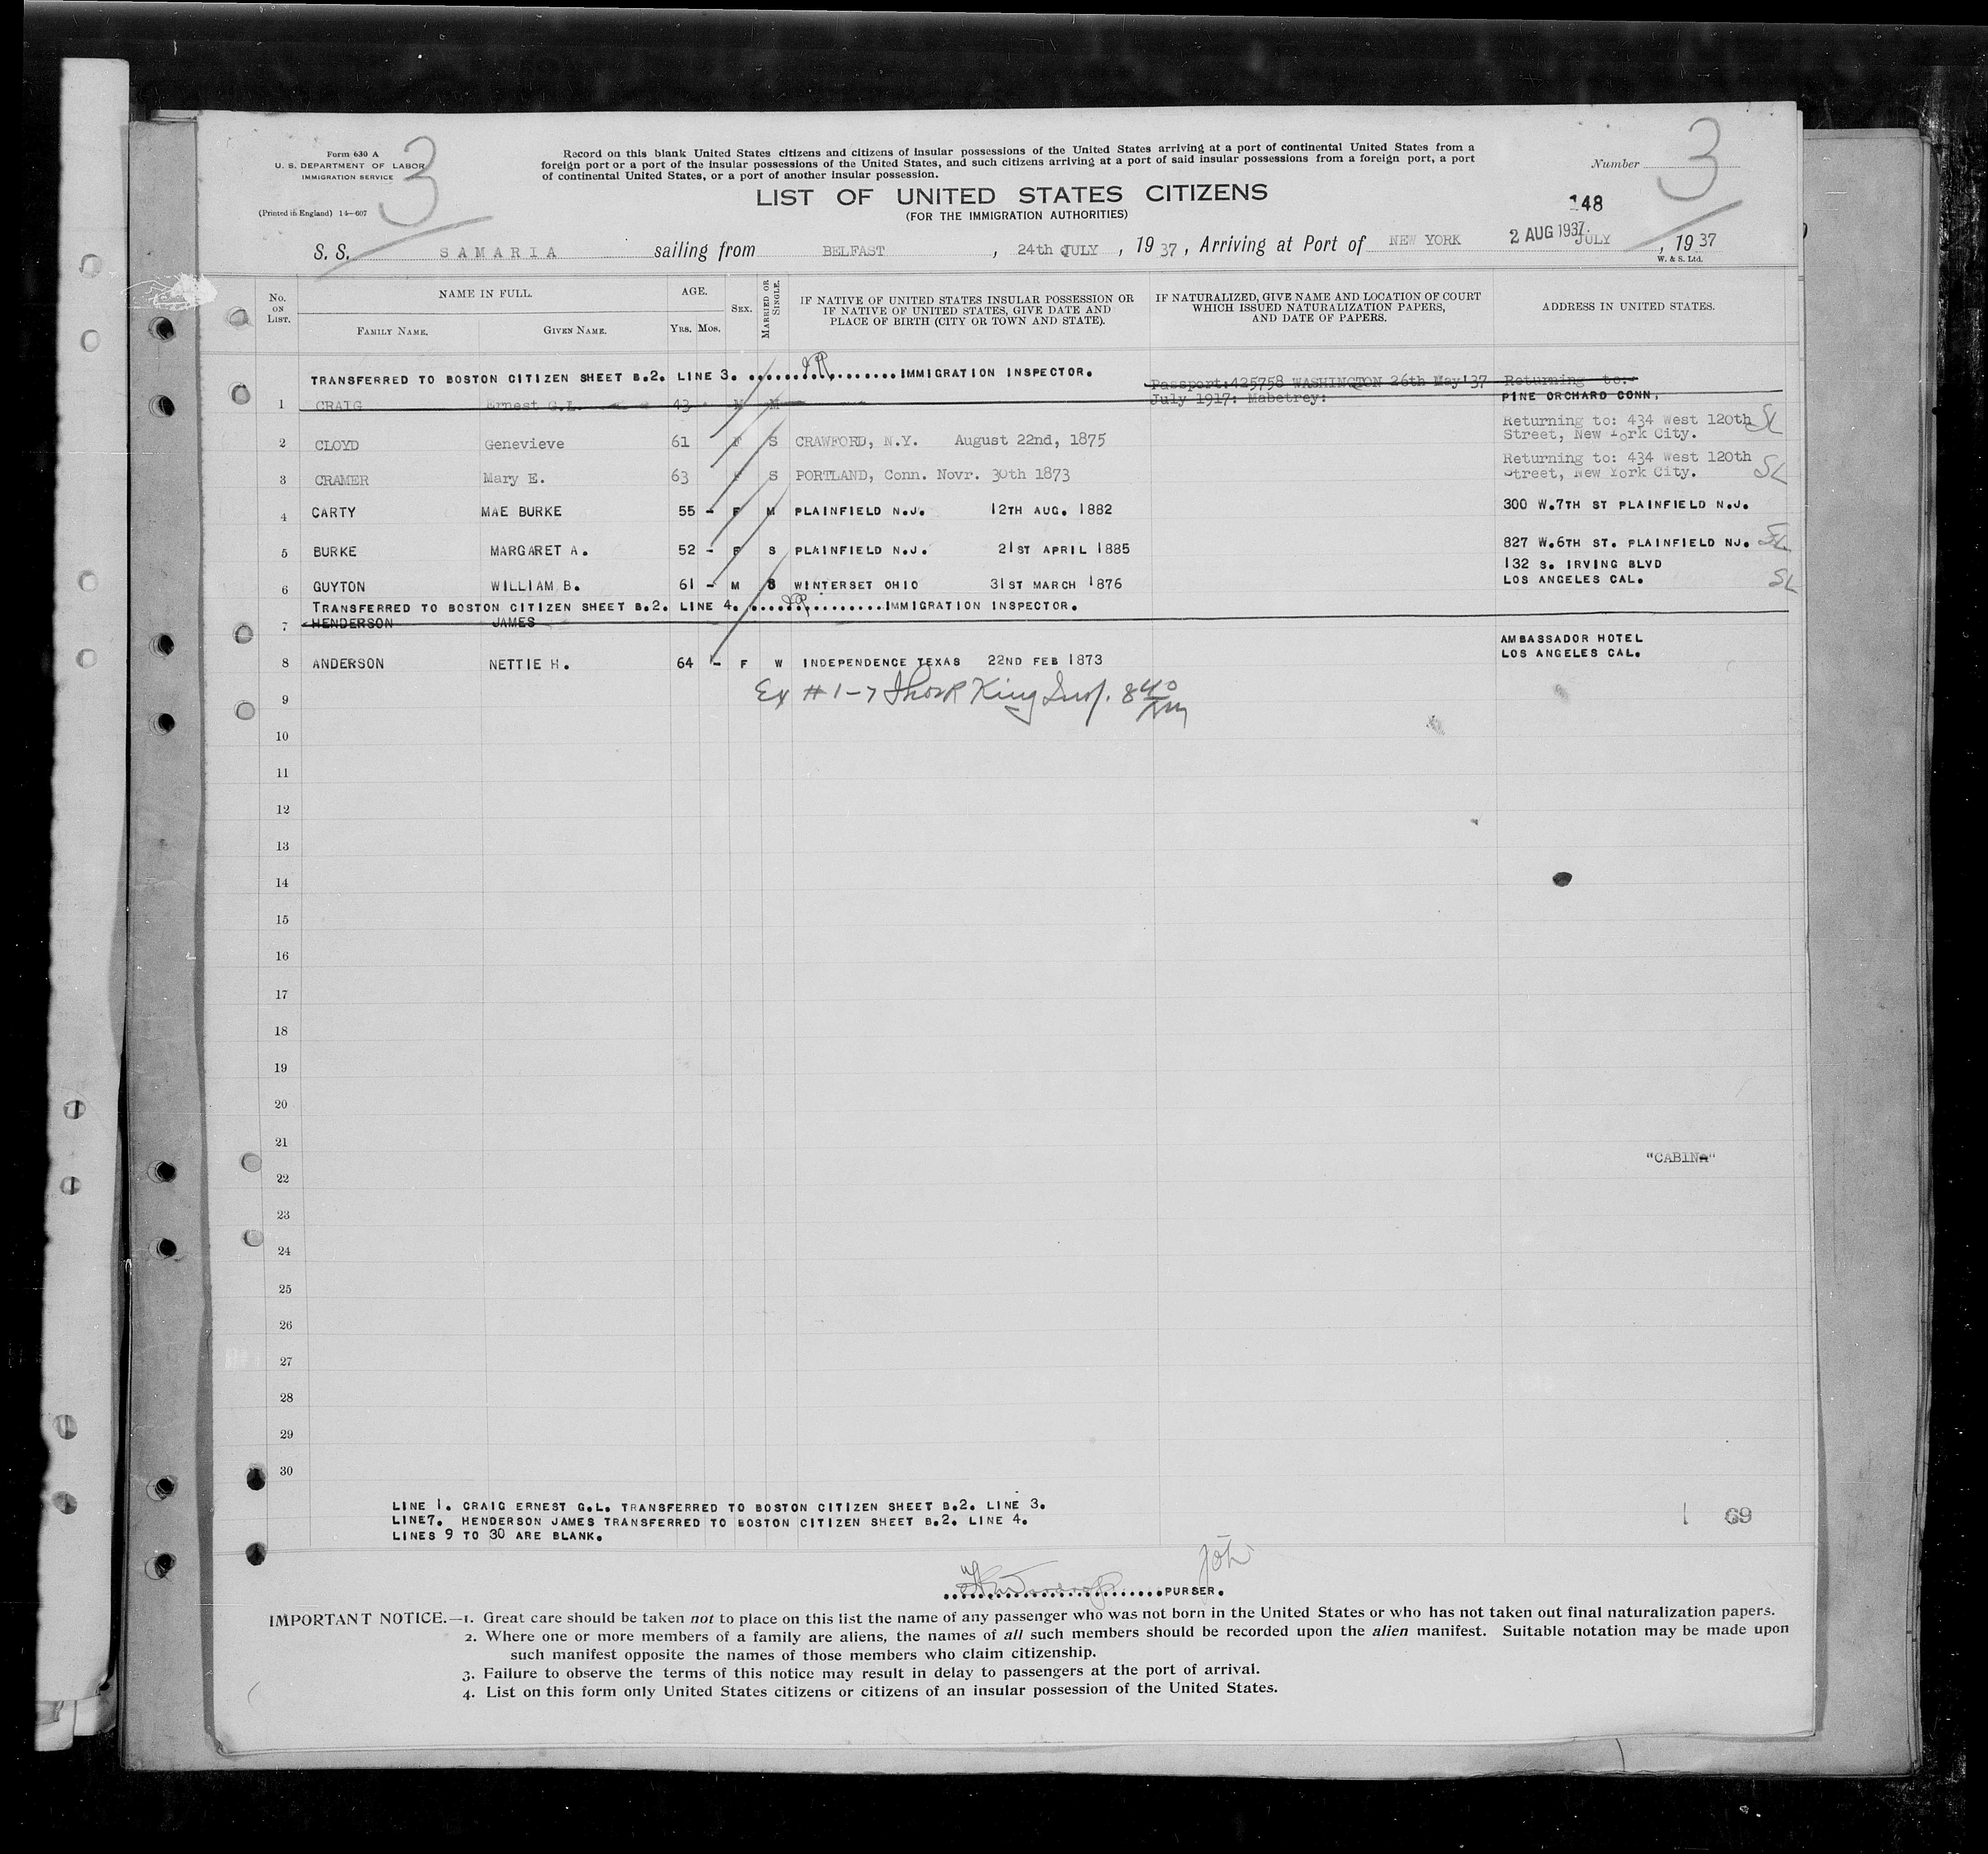 Form 630 A
U. S. DEPARTMENT OF LABOR
IMMIGRATION SERVICE
(Printed in England) 14—607
3
Record on this blank United States citizens and citizens of insular possessions of the United States arriving at a port of continental United States from a
foreign port or a port of the insular possessions of the United States, and such citizens arriving at a port of said insular possessions from a foreign port, a port
of continental United States, or a port of another insular possession.
LIST OF UNITED STATES CITIZENS
(FOR THE IMMIGRATION AUTHORITIES)
Number 3
148
S. S. SAMARIA sailing from BELFAST, 24th JULY, 1937, Arriving at Port of NEW YORK 2 AUG 1937. JULY, 1937
W. & S. Ltd.
No. ON LIST. NAME IN FULL. AGE. SEX. MARRIED OR SINGLE. IF NATIVE OF UNITED STATES INSULAR POSSESSION OR IF NATIVE OF UNITED STATES, GIVE DATE AND PLACE OF BIRTH (CITY OR TOWN AND STATE). IF NATURALIZED, GIVE NAME AND LOCATION OF COURT WHICH ISSUED NATURALIZATION PAPERS, AND DATE OF PAPERS. ADDRESS IN UNITED STATES.
FAMILY NAME. GIVEN NAME. Yrs. Mos.
TRANSFERRED TO BOSTON CITIZEN SHEET B.2. LINE 3. IMMIGRATION INSPECTOR.
Passport:425758 WASHINGTON 26th May'37 Returning to:
1 CRAIG Ernest G.L. 43 M M July 1917: Mabetrey: PINE ORCHARD CONN,
2 CLOYD Genevieve 61 F S CRAWFORD, N.Y. August 22nd, 1875 Returning to: 434 West 120th Street, New York City. SL
3 CRAMER Mary E. 63 F S PORTLAND, Conn. Novr. 30th 1873 Returning to: 434 West 120th Street, New York City. SL
4 CARTY MAE BURKE 55 - F M PLAINFIELD N.J. 12TH AUG. 1882 300 W.7TH ST PLAINFIELD N.J.
5 BURKE MARGARET A. 52 - F S PLAINFIELD N.J. 21ST APRIL 1885 827 W.6TH ST. PLAINFIELD NJ. SL
6 GUYTON WILLIAM B. 61 - M S WINTERSET OHIO 31ST MARCH 1876 132 S. IRVING BLVD LOS ANGELES CAL. SL
TRANSFERRED TO BOSTON CITIZEN SHEET B.2. LINE 4. IMMIGRATION INSPECTOR.
7 HENDERSON JAMES
8 ANDERSON NETTIE H. 64 - F W INDEPENDENCE TEXAS 22ND FEB 1873 AMBASSADOR HOTEL LOS ANGELES CAL.
Ex #1-7 Thos R King Insp. 840
9
10
11
12
13
14
15
16
17
18
19
20
21
"CABIN"
22
23
24
25
26
27
28
29
30
LINE 1. CRAIG ERNEST G.L. TRANSFERRED TO BOSTON CITIZEN SHEET B.2. LINE 3.
LINE7. HENDERSON JAMES TRANSFERRED TO BOSTON CITIZEN SHEET B.2. LINE 4.
LINES 9 TO 30 ARE BLANK.
1 69
PURSER.
IMPORTANT NOTICE.—1. Great care should be taken not to place on this list the name of any passenger who was not born in the United States or who has not taken out final naturalization papers.
2. Where one or more members of a family are aliens, the names of all such members should be recorded upon the alien manifest. Suitable notation may be made upon
such manifest opposite the names of those members who claim citizenship.
3. Failure to observe the terms of this notice may result in delay to passengers at the port of arrival.
4. List on this form only United States citizens or citizens of an insular possession of the United States.